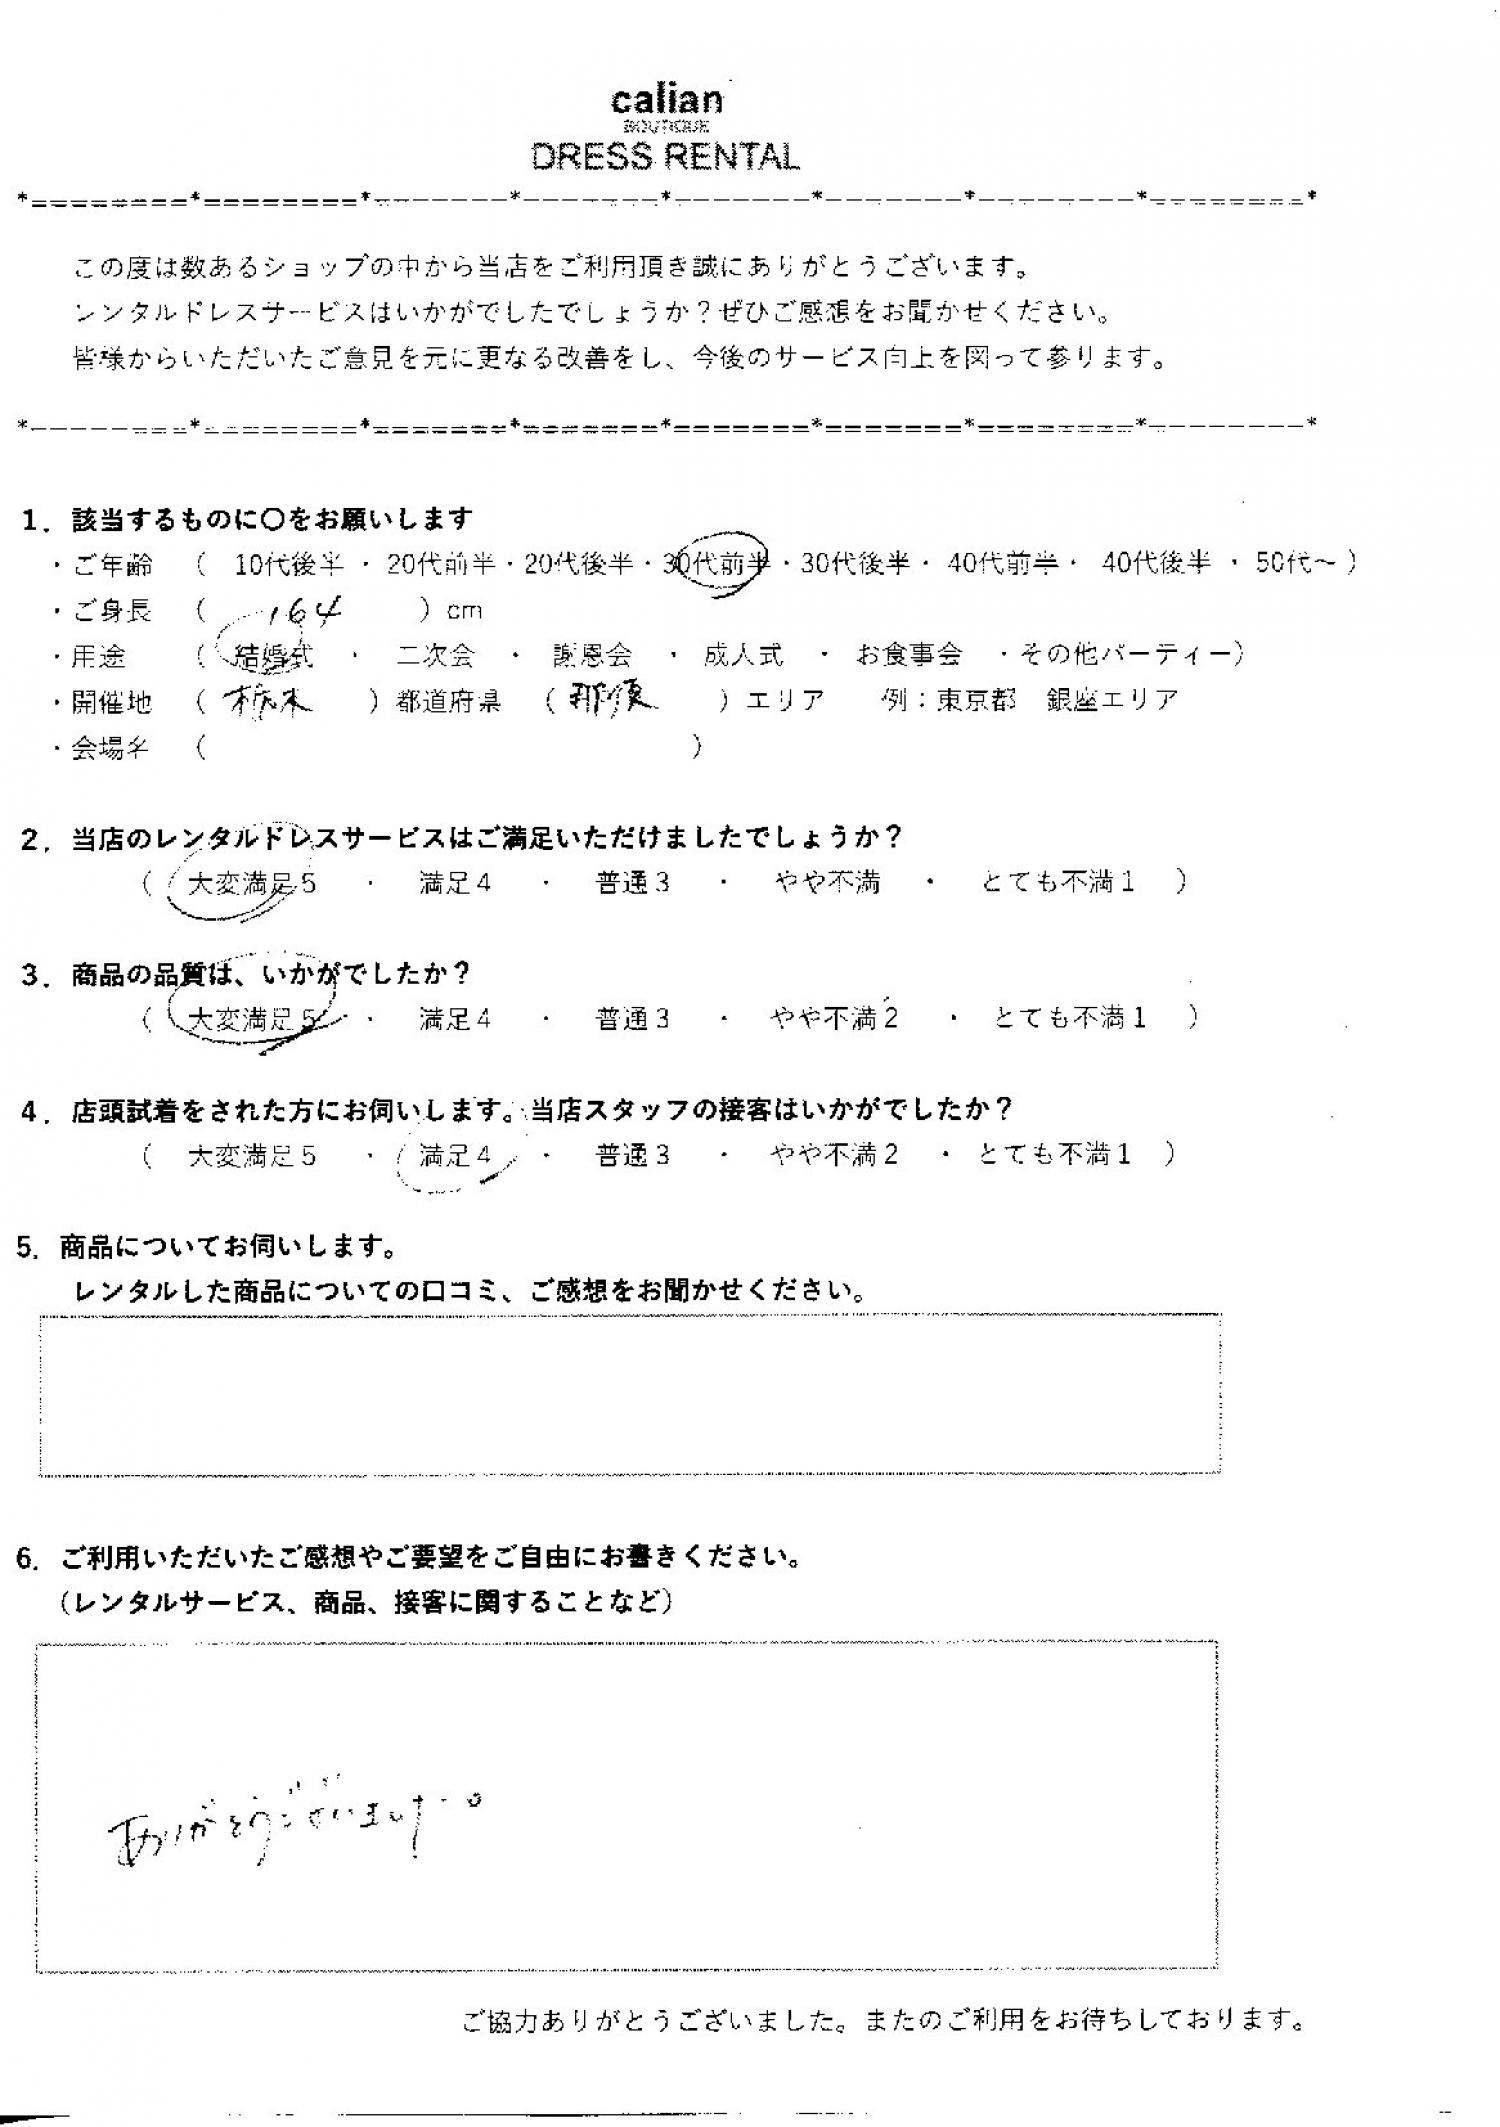 calian
BOUTIQUE
DRESS RENTAL
*========*========*========*=======*=======*=======*========*========*
この度は数あるショップの中から当店をご利用頂き誠にありがとうございます。
レンタルドレスサービスはいかがでしたでしょうか？ぜひご感想をお聞かせください。
皆様からいただいたご意見を元に更なる改善をし、今後のサービス向上を図って参ります。
*========*========*=======*=======*=======*=======*========*========*
1．該当するものに〇をお願いします
・ご年齢 （ 10代後半 ・ 20代前半・20代後半・30代前半・30代後半・ 40代前半・ 40代後半 ・ 50代～ ）
・ご身長 （ 164 ）cm
・用途 （ 結婚式 ・ 二次会 ・ 謝恩会 ・ 成人式 ・ お食事会 ・その他パーティー）
・開催地 （ 栃木 ）都道府県 （ 那須 ）エリア 例：東京都 銀座エリア
・会場名 （ ）
2．当店のレンタルドレスサービスはご満足いただけましたでしょうか？
（ 大変満足５ ・ 満足４ ・ 普通３ ・ やや不満 ・ とても不満１ ）
3．商品の品質は、いかがでしたか？
（ 大変満足５ ・ 満足４ ・ 普通３ ・ やや不満２ ・ とても不満１ ）
4．店頭試着をされた方にお伺いします。当店スタッフの接客はいかがでしたか？
（ 大変満足５ ・ 満足４ ・ 普通３ ・ やや不満２ ・ とても不満１ ）
5．商品についてお伺いします。
レンタルした商品についての口コミ、ご感想をお聞かせください。
6．ご利用いただいたご感想やご要望をご自由にお書きください。
（レンタルサービス、商品、接客に関することなど）
ありがとうございました。
ご協力ありがとうございました。またのご利用をお待ちしております。